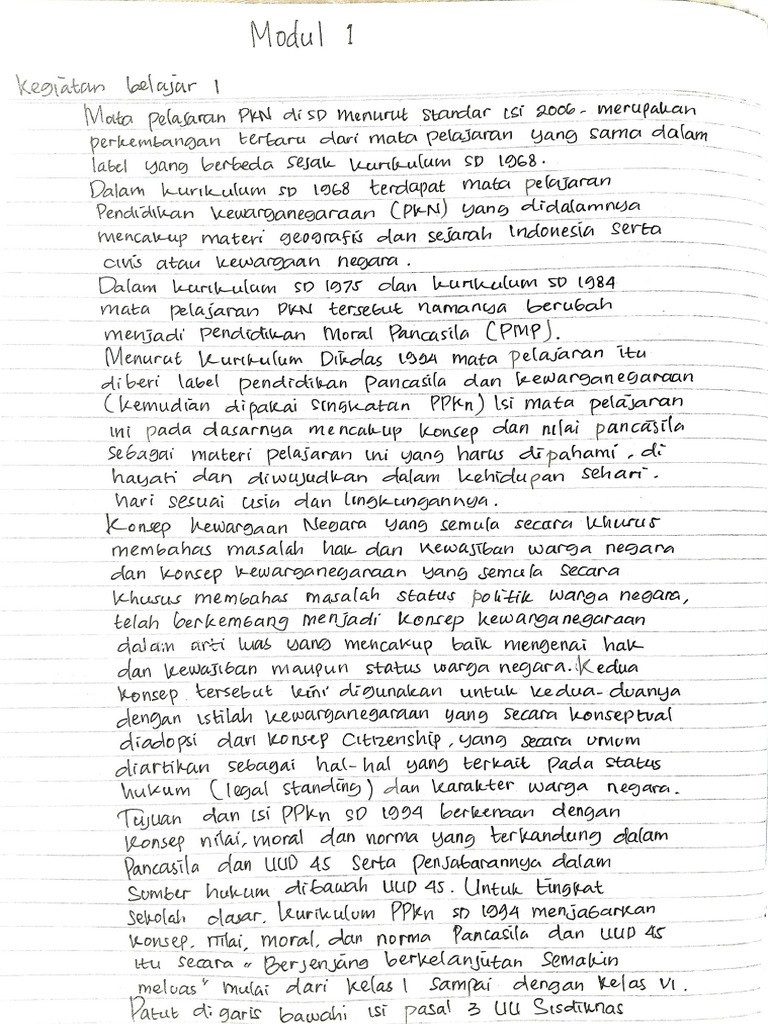 Modul 1
Kegiatan belajar 1
Mata pelajaran PKN di SD menurut Standar Isi 2006 - merupakan
perkembangan terbaru dari mata pelajaran yang sama dalam
label yang berbeda sejak kurikulum SD 1968.
Dalam kurikulum SD 1968 terdapat mata pelajaran
Pendidikan Kewarganegaraan (PKN) yang didalamnya
mencakup materi geografis dan sejarah Indonesia serta
civis atau kewargaan negara.
Dalam kurikulum SD 1975 dan kurikulum SD 1984
mata pelajaran PKN tersebut namanya berubah
menjadi Pendidikan Moral Pancasila (PMP).
Menurut Kurikulum Dikdas 1994 mata pelajaran itu
diberi label pendidikan pancasila dan kewarganegaraan
(kemudian dipakai singkatan PPKn) Isi mata pelajaran
ini pada dasarnya mencakup konsep dan nilai pancasila
sebagai materi pelajaran ini yang harus dipahami, di
hayati dan diwujudkan dalam kehidupan sehari.
hari sesuai usia dan lingkungannya.
Konsep kewargaan Negara yang semula secara khusus
membahas masalah hak dan kewajiban warga negara
dan konsep kewarganegaraan yang semula secara
khusus membahas masalah status politik warga negara,
telah berkembang menjadi konsep kewarganegaraan
dalam arti luas yang mencakup baik mengenai hak
dan kewajiban maupun status warga negara. Kedua
konsep tersebut kini digunakan untuk kedua-duanya
dengan istilah kewarganegaraan yang secara konseptual
diadopsi dari konsep Citizenship, yang secara umum
diartikan sebagai hal-hal yang terkait pada status
hukum (legal standing) dan karakter warga negara.
Tujuan dan isi PPKn SD 1994 berkenaan dengan
konsep nilai, moral dan norma yang terkandung dalam
Pancasila dan UUD 45 serta penjabarannya dalam
Sumber hukum dibawah UUD 45. Untuk tingkat
sekolah dasar, kurikulum PPKn SD 1994 menjabarkan
konsep, nilai, moral, dan norma Pancasila dan UUD 45
itu secara "Berjenjang berkelanjutan semakin
meluas" mulai dari kelas I sampai dengan kelas VI.
Patut digaris bawahi isi pasal 3 UU Sisdiknas